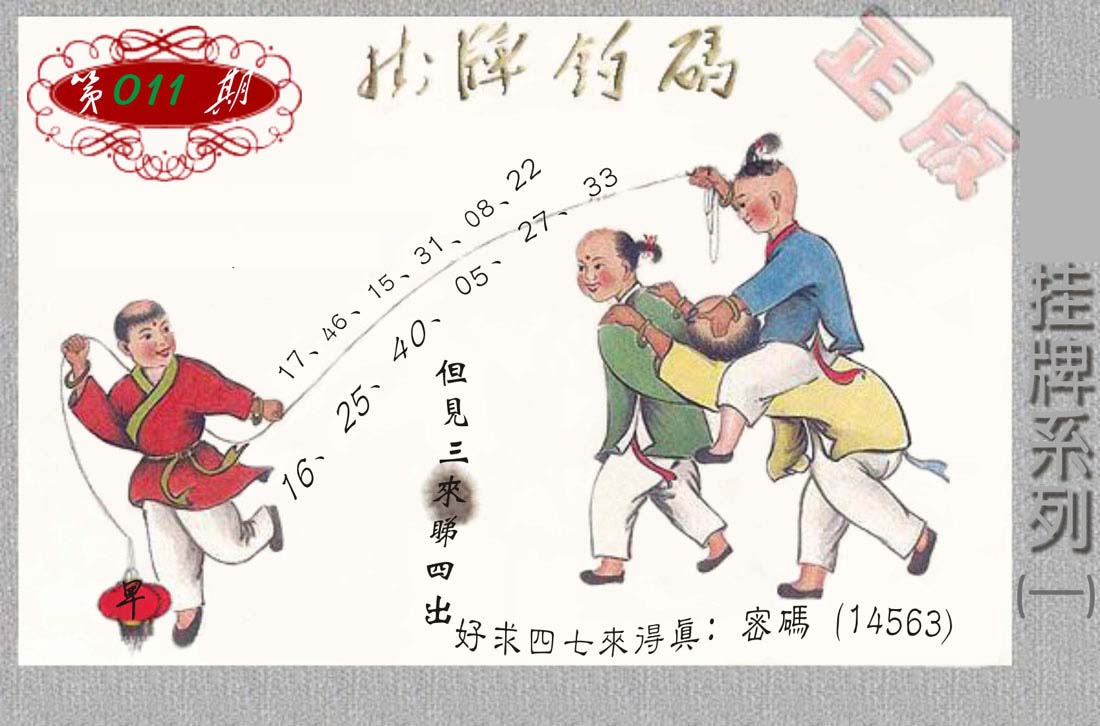 第011期
掛牌釣碼
正版
17、46、15、31、08、22
16、25、40、05、27、33
但見三來睇四出
早
好求四七來得眞：密碼（14563）
挂牌系列(一)